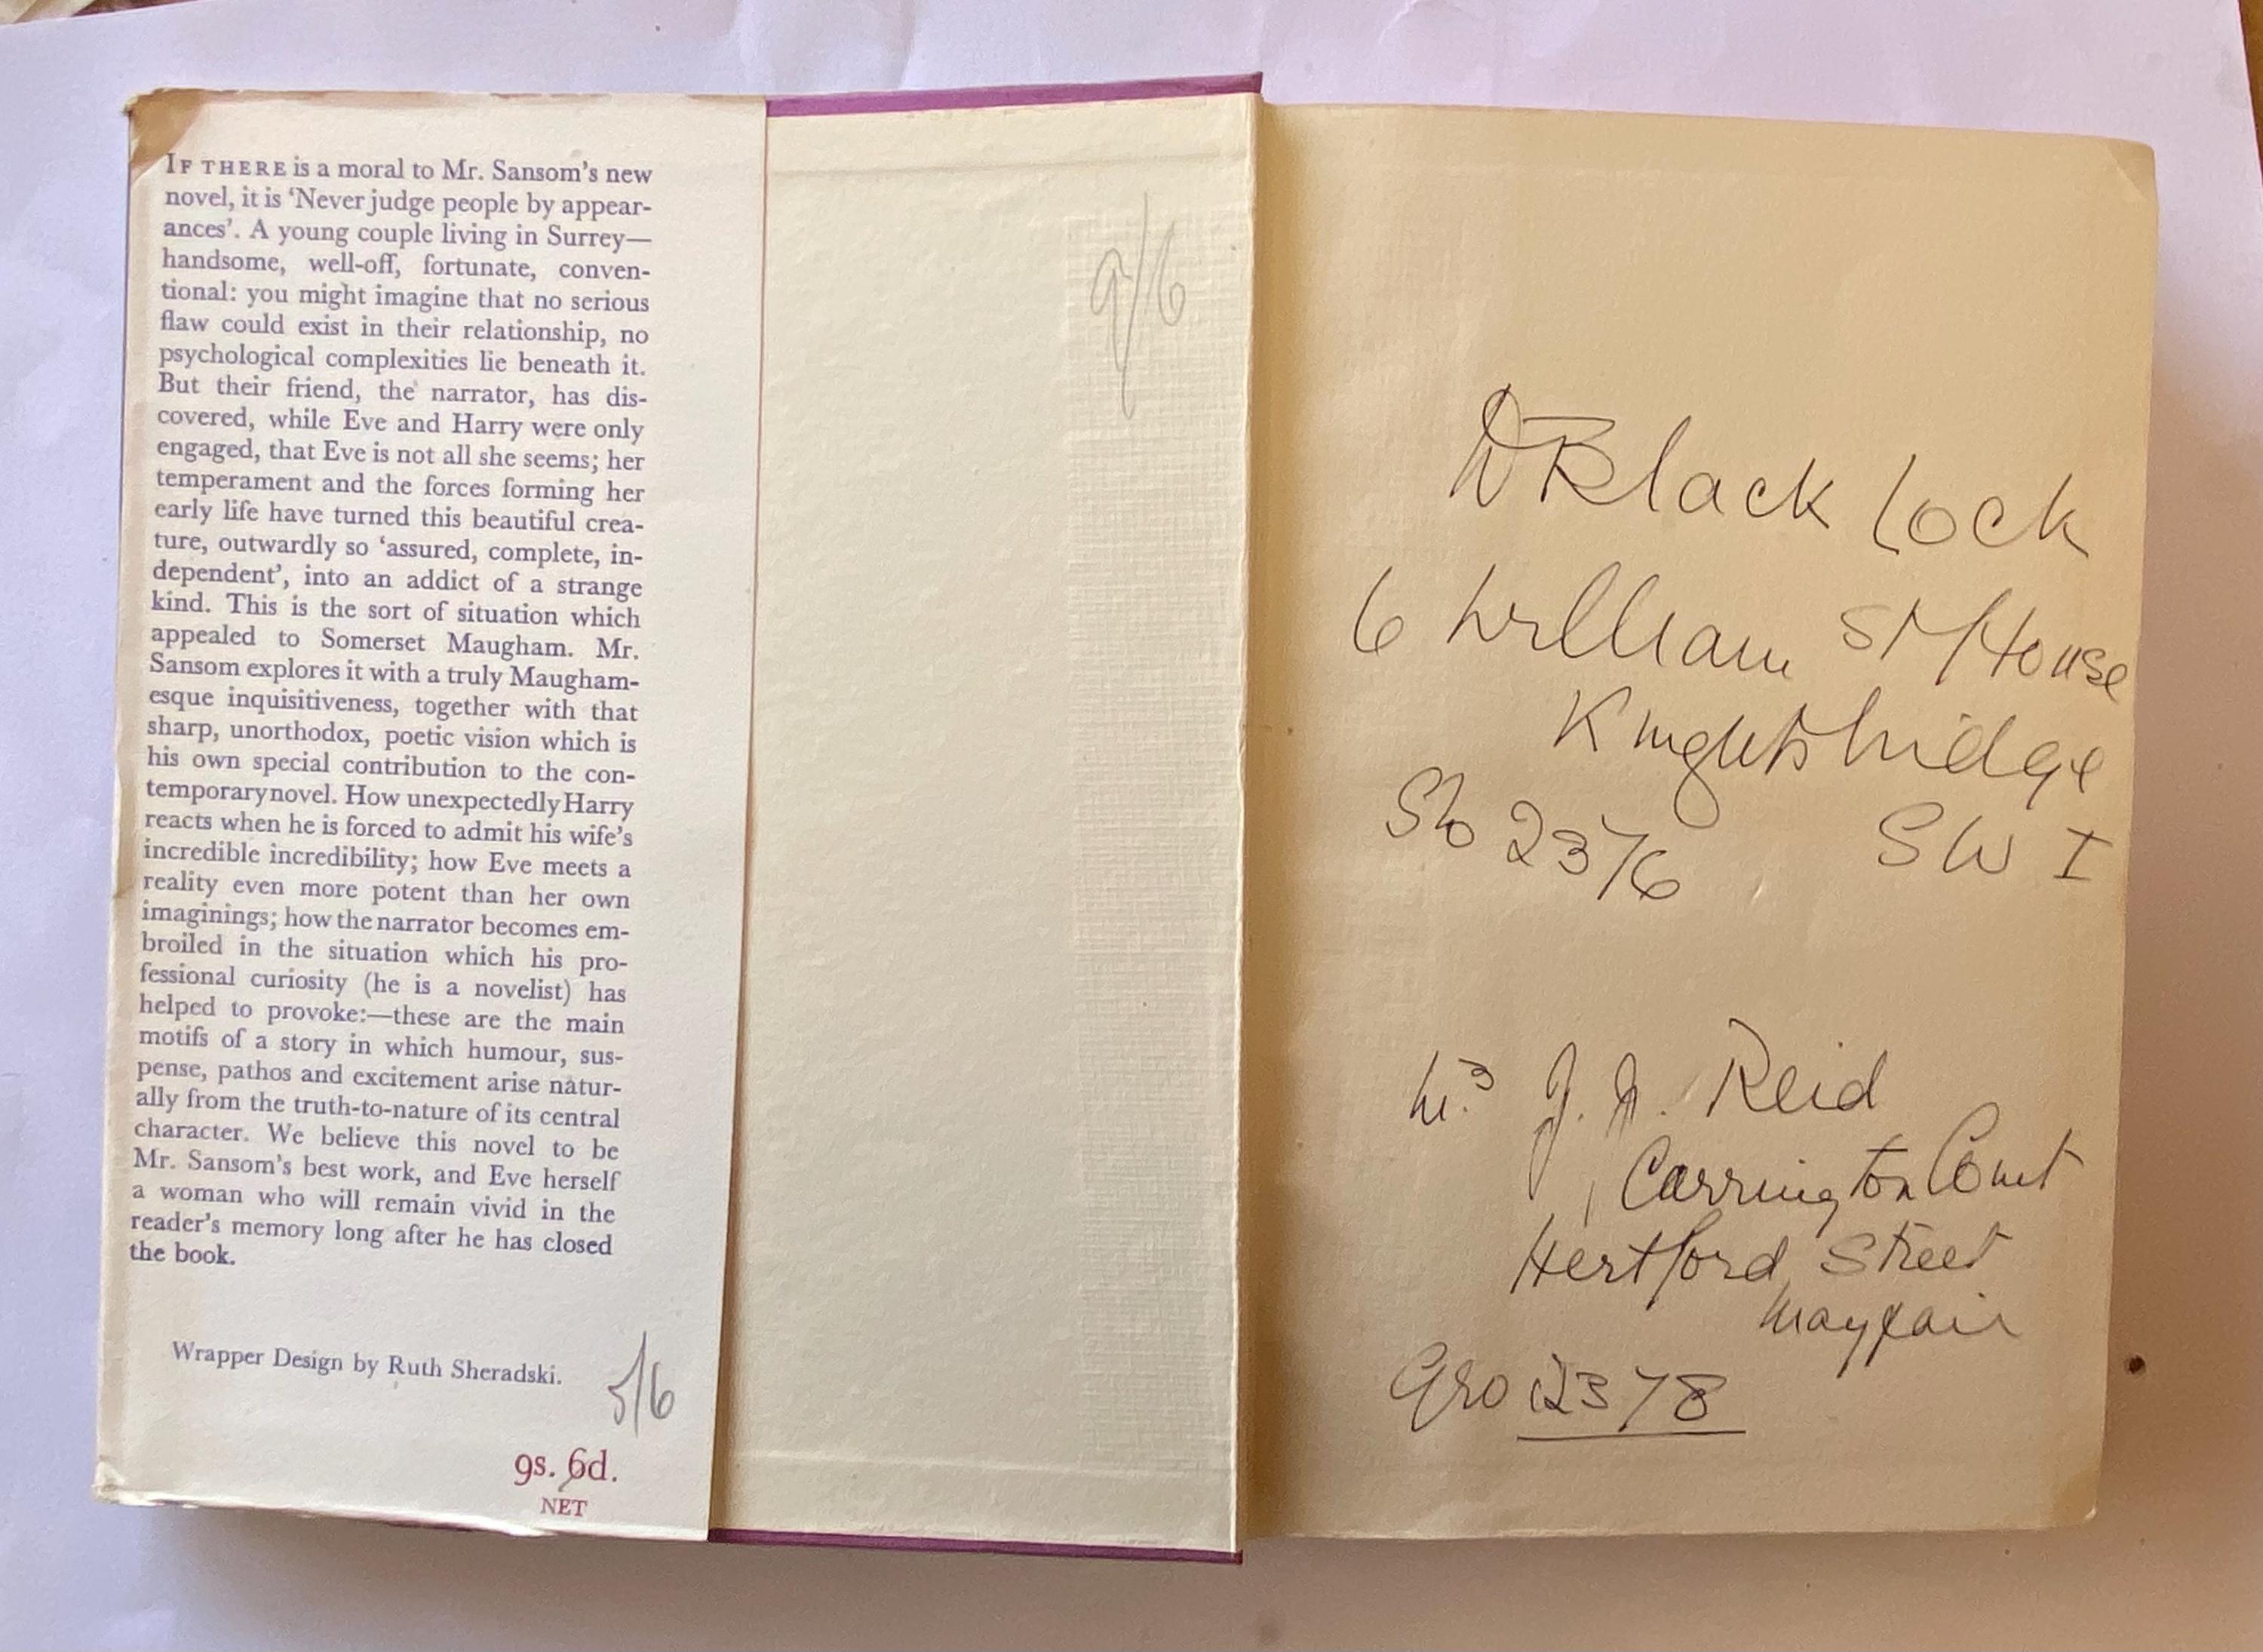 IF THERE is a moral to Mr. Sansom's new
novel, it is ‘Never judge people by appear-
ances’. A young couple living in Surrey—
handsome, well-off, fortunate, conven-
tional: you might imagine that no serious
flaw could exist in their relationship, no
psychological complexities lie beneath it.
But their friend, the narrator, has dis-
covered, while Eve and Harry were only
engaged, that Eve is not all she seems; her
temperament and the forces forming her
early life have turned this beautiful crea-
ture, outwardly so ‘assured, complete, in-
dependent’, into an addict of a strange
kind. This is the sort of situation which
appealed to Somerset Maugham. Mr.
Sansom explores it with a truly Maugham-
esque inquisitiveness, together with that
sharp, unorthodox, poetic vision which is
his own special contribution to the con-
temporary novel. How unexpectedly Harry
reacts when he is forced to admit his wife's
incredible incredibility; how Eve meets a
reality even more potent than her own
imaginings; how the narrator becomes em-
broiled in the situation which his pro-
fessional curiosity (he is a novelist) has
helped to provoke:—these are the main
motifs of a story in which humour, sus-
pense, pathos and excitement arise natur-
ally from the truth-to-nature of its central
character. We believe this novel to be
Mr. Sansom's best work, and Eve herself
a woman who will remain vivid in the
reader's memory long after he has closed
the book.
Wrapper Design by Ruth Sheradski.
5/6
9s. 6d.
NET
9/6
Black lock
6 William St House
Knightsbridge
Slo 2376 SW I
J. Reid
Carrington Court
Hertford Street
Mayfair
Gro 2378